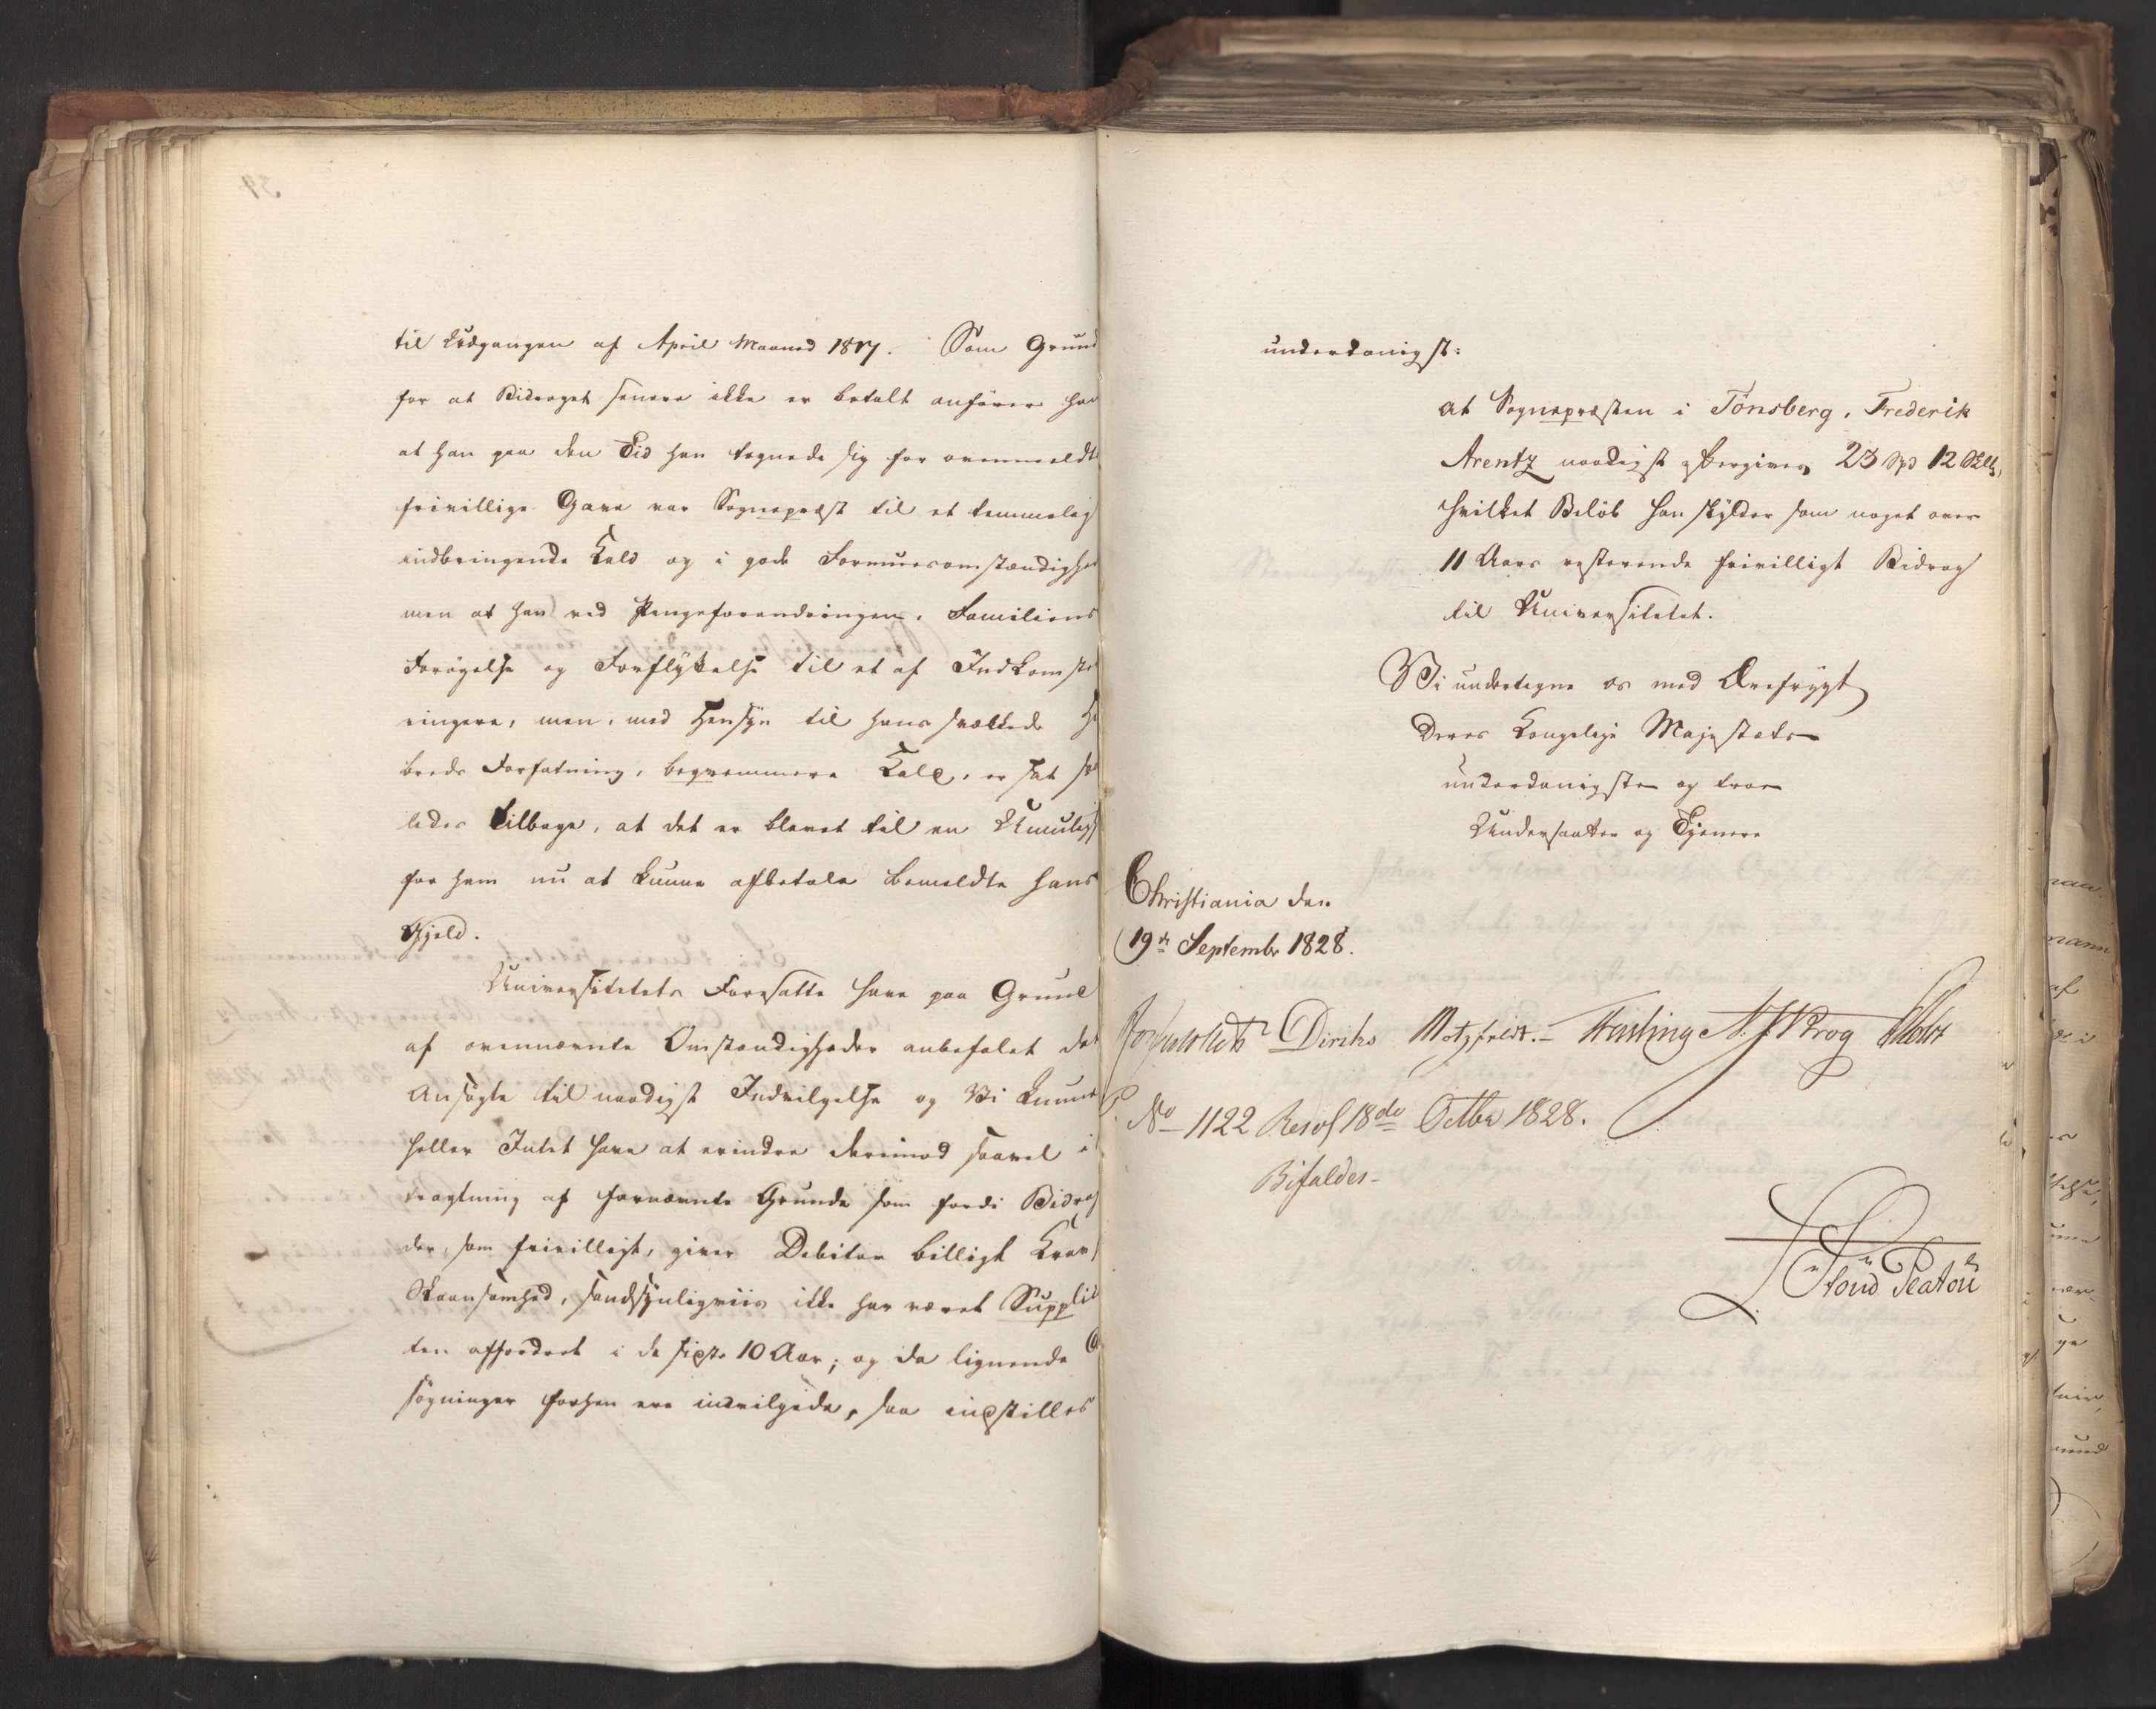 til Udgangen af April Maaned 1817. Som Grund
for at Bidraget senere ikke er betalt anfører han
at han paa den Tid han tegnede sig for ovenmeldte
frivillige Gave var Sognepræst til et temmelig
indbringende Kald og i gode Formuesomstændighe
men at han ved Pengeforandringen, Familiens
Forøgelse og Forflyttelse til et af Indkomster
ringere, men, med Hensyn til hans svækkede He
breds Forfatning, beqvemmere Kald, er sat saa
ledes tilbage, at det er blevet til en Umulighed
for ham nu at kunne afbetale bemeldte hans
Gjeld.
Universitetets Foresatte have paa Grund
af ovennævnte Omstændigheder anbefalet det
Ansøgte til naadigst Indvilgelse og Vi kunne
heller Intet have at erindre derimod saavel i
tragtning af fornævnte Grunde som fordi Bidrag
der, som frivilligt, giver Debitor billigt Krav
Skaansomhed, sandsynligviis ikke har været Suppli
ten affordret i de sidste 10 Aar; og da lignende
søgninger forhen ere indvilgede, saa indstilles
underdanigst:
at Sognepræsten i Tönsberg, Frederik
Arentz naadigst eftergives 23 Spd 12 Skill,
hvilket Beløb han skylder som noget over
11 Aars resterende frivilligt Bidrag
til Universitetet.
Vi undertegne os med Ærefrygt
Deres Kongelige Majestæts
underdanigste og troe
Undersaatter og Tjenere
Christiania den
19de September 1828.
Diriks Motzfeldt. Fasting Krog
No 1122 Resol 18de Octbr 1828.
Bifaldes